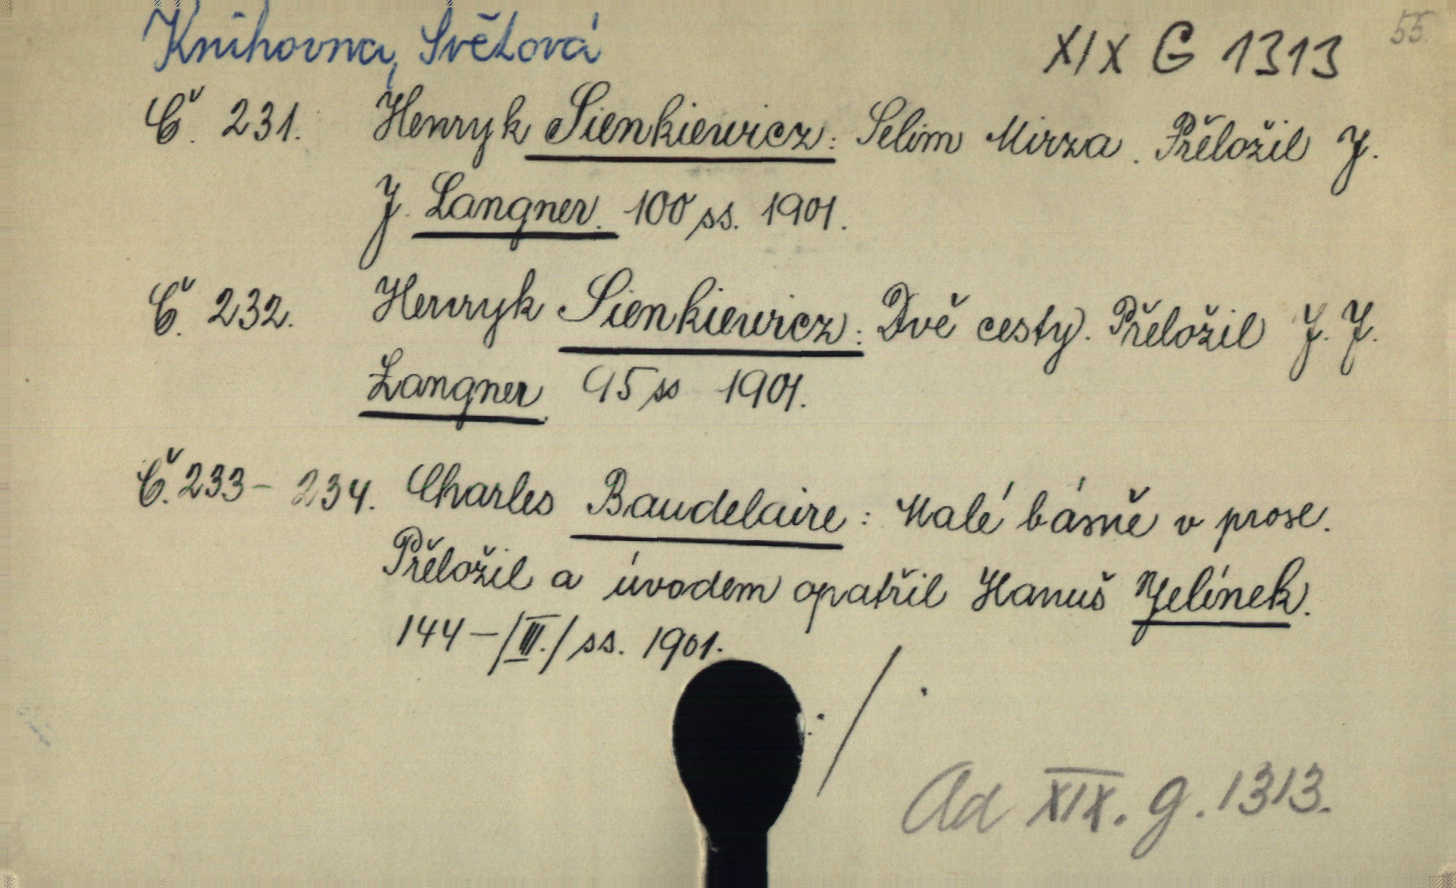 Knihovna, Světová XIX G 1313 55.
Č. 231. Henryk Sienkiewicz: Selim Mirza. Přeložil J.
J. Langner. 100 ss. 1901.
Č. 232. Henryk Sienkiewicz: Dvě cesty. Přeložil J. J.
Langner. 95 ss 1901.
Č. 233 - 234. Charles Baudelaire: Malé básně v prose.
Přeložil a úvodem opatřil Hanuš Jelínek.
144 - /III./ ss. 1901.
./.
Ad XIX. g. 1313.